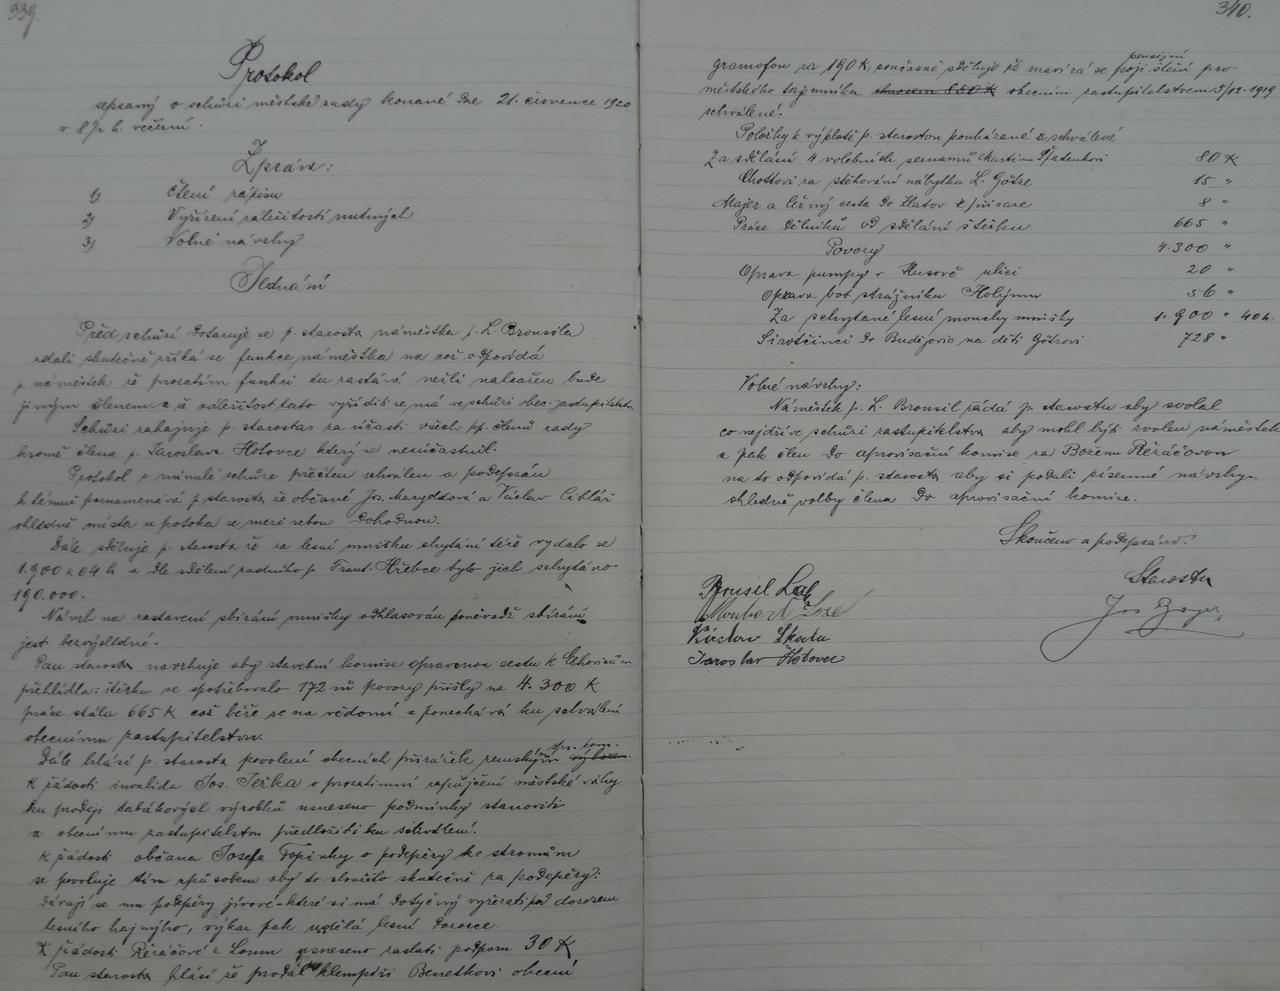 339.
Protokol
sepsaný o schůzi městské rady konané dne 21. července 1920
v 8 ½ h. večerní.
Zpráva:
1) Čtení zápisu
2) Vyřízení záležitostí nutných
3) Volné návrhy
Jednání
Před schůzí dotazuje se p. starosta náměstka p. L. Brousila
zdali skutečně zříká se funkce náměstka na což odpovídá
p. náměstek že prozatím funkci tu zastává nežli nahražen bude
jiným členem a že záležitost tato vyříditi se má ve schůzi obec. zastupitelstva
Schůzi zahajuje p. starosta za účasti všech pp. členů rady
kromě člena p. Jaroslava Hotovce který se neúčastnil.
Protokol z minulé schůze přečten schválen a podepsán
k témuž poznamenává p. starosta že občané Jos. a Václav
ohledně místa u potoka se mezi sebou dohodnou.
Dále sděluje p. starosta že za lesní mnišku chytání téže vydalo se
1.900 K 04 h a dle sdělení radního p. Frant. Hřebce bylo jich schytáno
190.000.
Návrh na zastavení sbírání mnišky odhlasován poněvadž sbírání
jest bezvýsledné.
Pan starosta navrhuje aby stavební komise opravenou cestu k
přehlídla: štěrku se spotřebovalo 172 m povozy přišly na 4.300 K
práce stála 665 K což béře se na vědomí a ponechává ku schválení
obecnímu zastupitelstvu.
Dále hlásí p. starosta povolení obecních přirážek zemským spr. kom. výborem.
K žádosti invalida Jos. Ježka o prozatimní zapůjčení městské váhy
ku prodeji tabákových výrobků usneseno podmínky stanoviti
a obecnímu zastupitelstvu předložiti ku schválení.
K žádosti občana Josefa Topinky o podepěry ke stromům
se povoluje tím způsobem aby to sloužilo skutečně za podepěry:
dávají se mu podpěry jívové které si má dotyčný vyřezati pod dozorem
lesního hajného, výkaz pak udělá lesní dozorce.
K žádosti Řezáčové z Loun usneseno zaslati podporu 30 K
Pan starosta hlásí že prodal klempíři Benetkovi obecní
340.
gramofon za 190 K, současně sděluje že uzavírá se pensijní pojištění pro
městského tajemníka obnosem 850 K obecním zastupitelstvem 5/12 1919
schválené.
Položky k výplatě p. starostou poukázané a schválené
Za zdělání 4 volebních seznamů Martinu 80 K
Chottovi za stěhování nábytku L. Götze 15 "
Majer a Lešný cesta do Zlatov k přísaze 8 "
Práce dělníků od zdělání štěrku 665 "
Povozy 4.300 "
Oprava pumpy v Husově ulici 20 "
Oprava bot strážníku Holýmu 56 "
Za schytané lesní mouchy mnišky 1.900 " 40 h.
Sirotčinci do Budějovic na děti Götzovi 728 "
Volné návrhy:
Náměstek p. L. Brousil žádá p. starostu aby svolal
co nejdříve schůzi zastupitelstva aby mohl býti zvolen náměstek
a pak člen do aprovisační komise za Boženu Řezáčovou
na to odpovídá p. starosta aby si podali písemné návrhy
ohledně volby člena do aprovisační komise.
Skončeno a podepsáno.
Brousil Lad.
Starosta
Václav Škarda
Jaroslav Hotovec